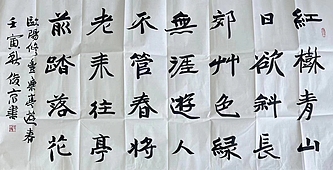 紅樹青山
日欲斜長
郊艸色綠
無涯遊人
不管春將
老来往亭
前踏落花
歐陽修豐樂亭遊春
壬寅秋俊宏書